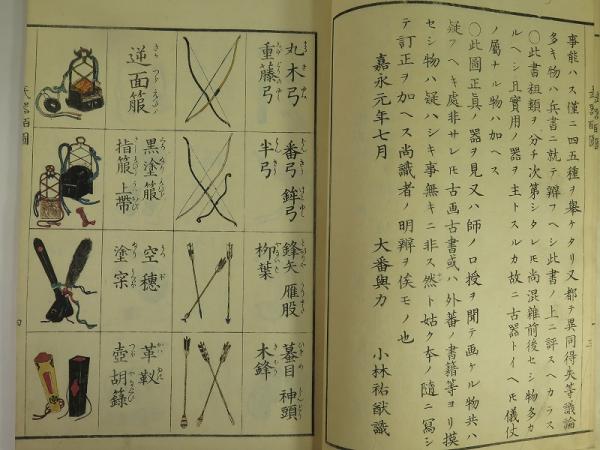 事能ハス僅ニ四五種ヲ擧ケタリ又都テ異同得失等議論
多キ物ハ兵書ニ就テ辯フヘシ此書ノ上ニ評スヘカラス
〇此書粗類ヲ分チ次第シタレモ尚混雜前後セシ物多カ
ルヘシ且實用ノ器ヲ主トスルカ故ニ古器トイヘモ儀仗
ノ屬ナル物ハ加ヘス
〇此圖正真ノ器ヲ見又ハ師ノ口授ヲ聞テ画ケル物共ハ
疑フヘキ處非サレモ古画古書或ハ外蕃ノ書籍等ヨリ摸
セシ物ハ疑ハシキ事無キニ非ス然ト姑ク本ノ隨ニ寫シ
テ訂正ヲ加ヘス尚識者ノ明辯ヲ俟モノ也
嘉永元年七月
大番與力 小林祐猷識
丸木弓
重藤弓
番弓 鉾弓
半弓
鋒矢 雁股
柳葉
蟇目 神頭
木鋒
逆面箙
黒塗箙
指箙 上帶
空穗
塗空
革靫
壺胡籙